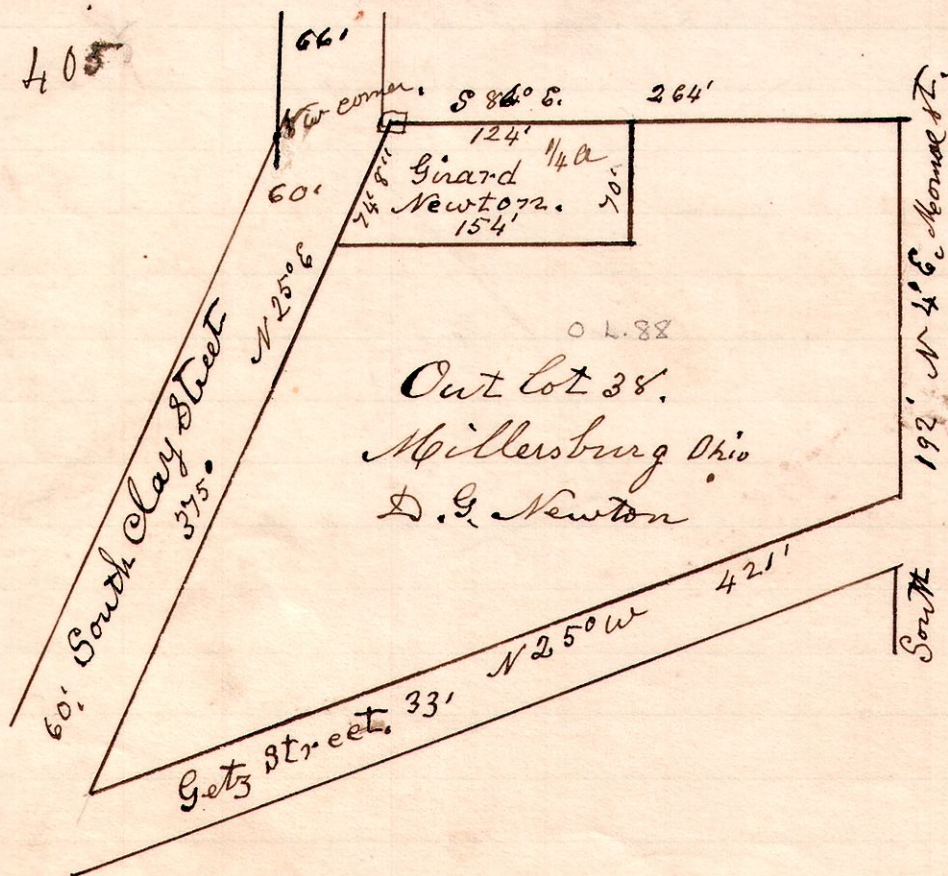 405
66'
N W corner.
S 86° E. 264'
124'
Girard 1/4 a
Newton.
154'
74' 8"
70'
60'
N 25° E
South Clay Street
375°
60'
O L. 88
Out lot 38.
Millersburg Ohio
D. G. Newton
192' N 4° E. St.
South
N 25° W 421'
Getz Street. 33'